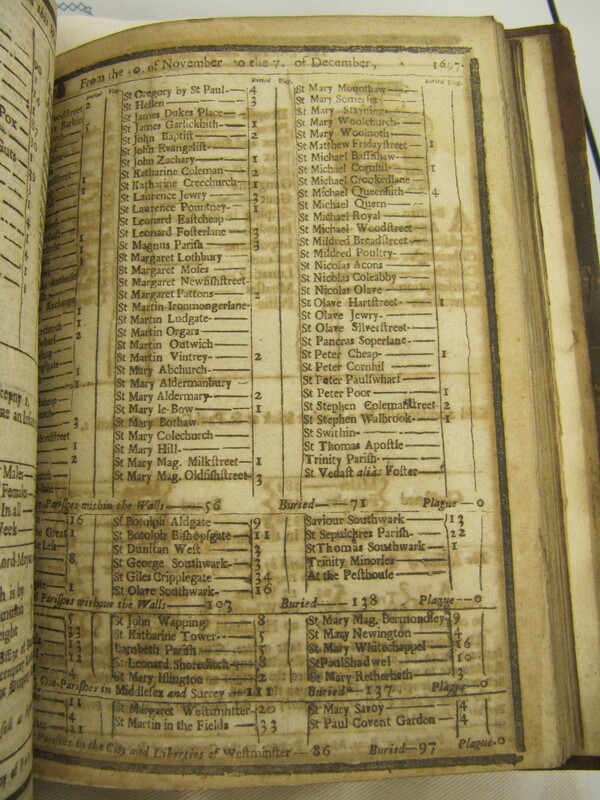 From the 30. of November to the 7. of December, 1697.
Buried Plag.
St Gregory by St Paul- 4
St Hellen 3
St James Dukes Place
St James Garlickhith 1
St John Baptist 2
St John Evangelist
St John Zachary 1
St Katharine Coleman 2
St Katharine Creechurch 1
St Laurence Jewry 3
St Laurence Pountney 1
St Leonard Eastcheap
St Leonard Fosterlane 3
St Magnus Parish 3
St Margaret Lothbury
St Margaret Moses
St Margaret Newfishstreet
St Margaret Pattons 2
St Martin Ironmongerlane
St Martin Ludgate
St Martin Orgars
St Martin Outwich
St Martin Vintrey 2
St Mary Abchurch
St Mary Aldermanbury
St Mary Aldermary 2
St Mary le-Bow 1
St Mary Bothaw
St Mary Colechurch
St Mary Hill
St Mary Mag. Milkstreet 1
St Mary Mag. Oldfishstreet 3
Buried Plag.
St Mary Mounthaw
St Mary Somerset
St Mary Stayning
St Mary Woolchurch
St Mary Woolnoth
St Matthew Fridaystreet 1
St Michael Bassishaw
St Michael Cornhil 1
St Michael Crookedlane
St Michael Queenhith 4
St Michael Quern
St Michael Royal
St Michael Woodstreet
St Mildred Breadstreet
St Mildred Poultry
St Nicolas Acons
St Nicolas Coleabby
St Nicolas Olave
St Olave Hartstreet 1
St Olave Jewry
St Olave Silverstreet
St Pancras Soperlane
St Peter Cheap 1
St Peter Cornhil
St Peter Paulswharf
St Peter Poor 1
St Stephen Colemanstreet 2
St Stephen Walbrook 1
St Swithin
St Thomas Apostle
Trinity Parish
St Vedast alias Foster
Parishes within the Walls 56 Buried 71 Plague 0
St Botolph Aldgate 9
St Botolph Bishopsgate 11
St Dunstan West 3
St George Southwark 3
St Giles Cripplegate 34
St Olave Southwark 16
Saviour Southwark 13
St Sepulchres Parish 22
St Thomas Southwark 1
Trinity Minories
At the Pesthouse
Parishes without the Walls 103 Buried 138 Plague 0
St John Wapping 8
St Katharine Tower 5
Lambeth Parish 5
St Leonard Shoreditch 8
St Mary Islington 2
St Mary Mag. Bermondsey 9
St Mary Newington 4
St Mary Whitechappel 16
St Paul Shadwel 10
St Mary Rotherheth 3
Out-Parishes in Middlesex and Surrey 111 Buried 137 Plague 0
St Margaret Westminster 20
St Martin in the Fields 33
St Mary Savoy 4
St Paul Covent Garden 4
Parishes in the City and Liberties of Westminster 86 Buried 97 Plague 0